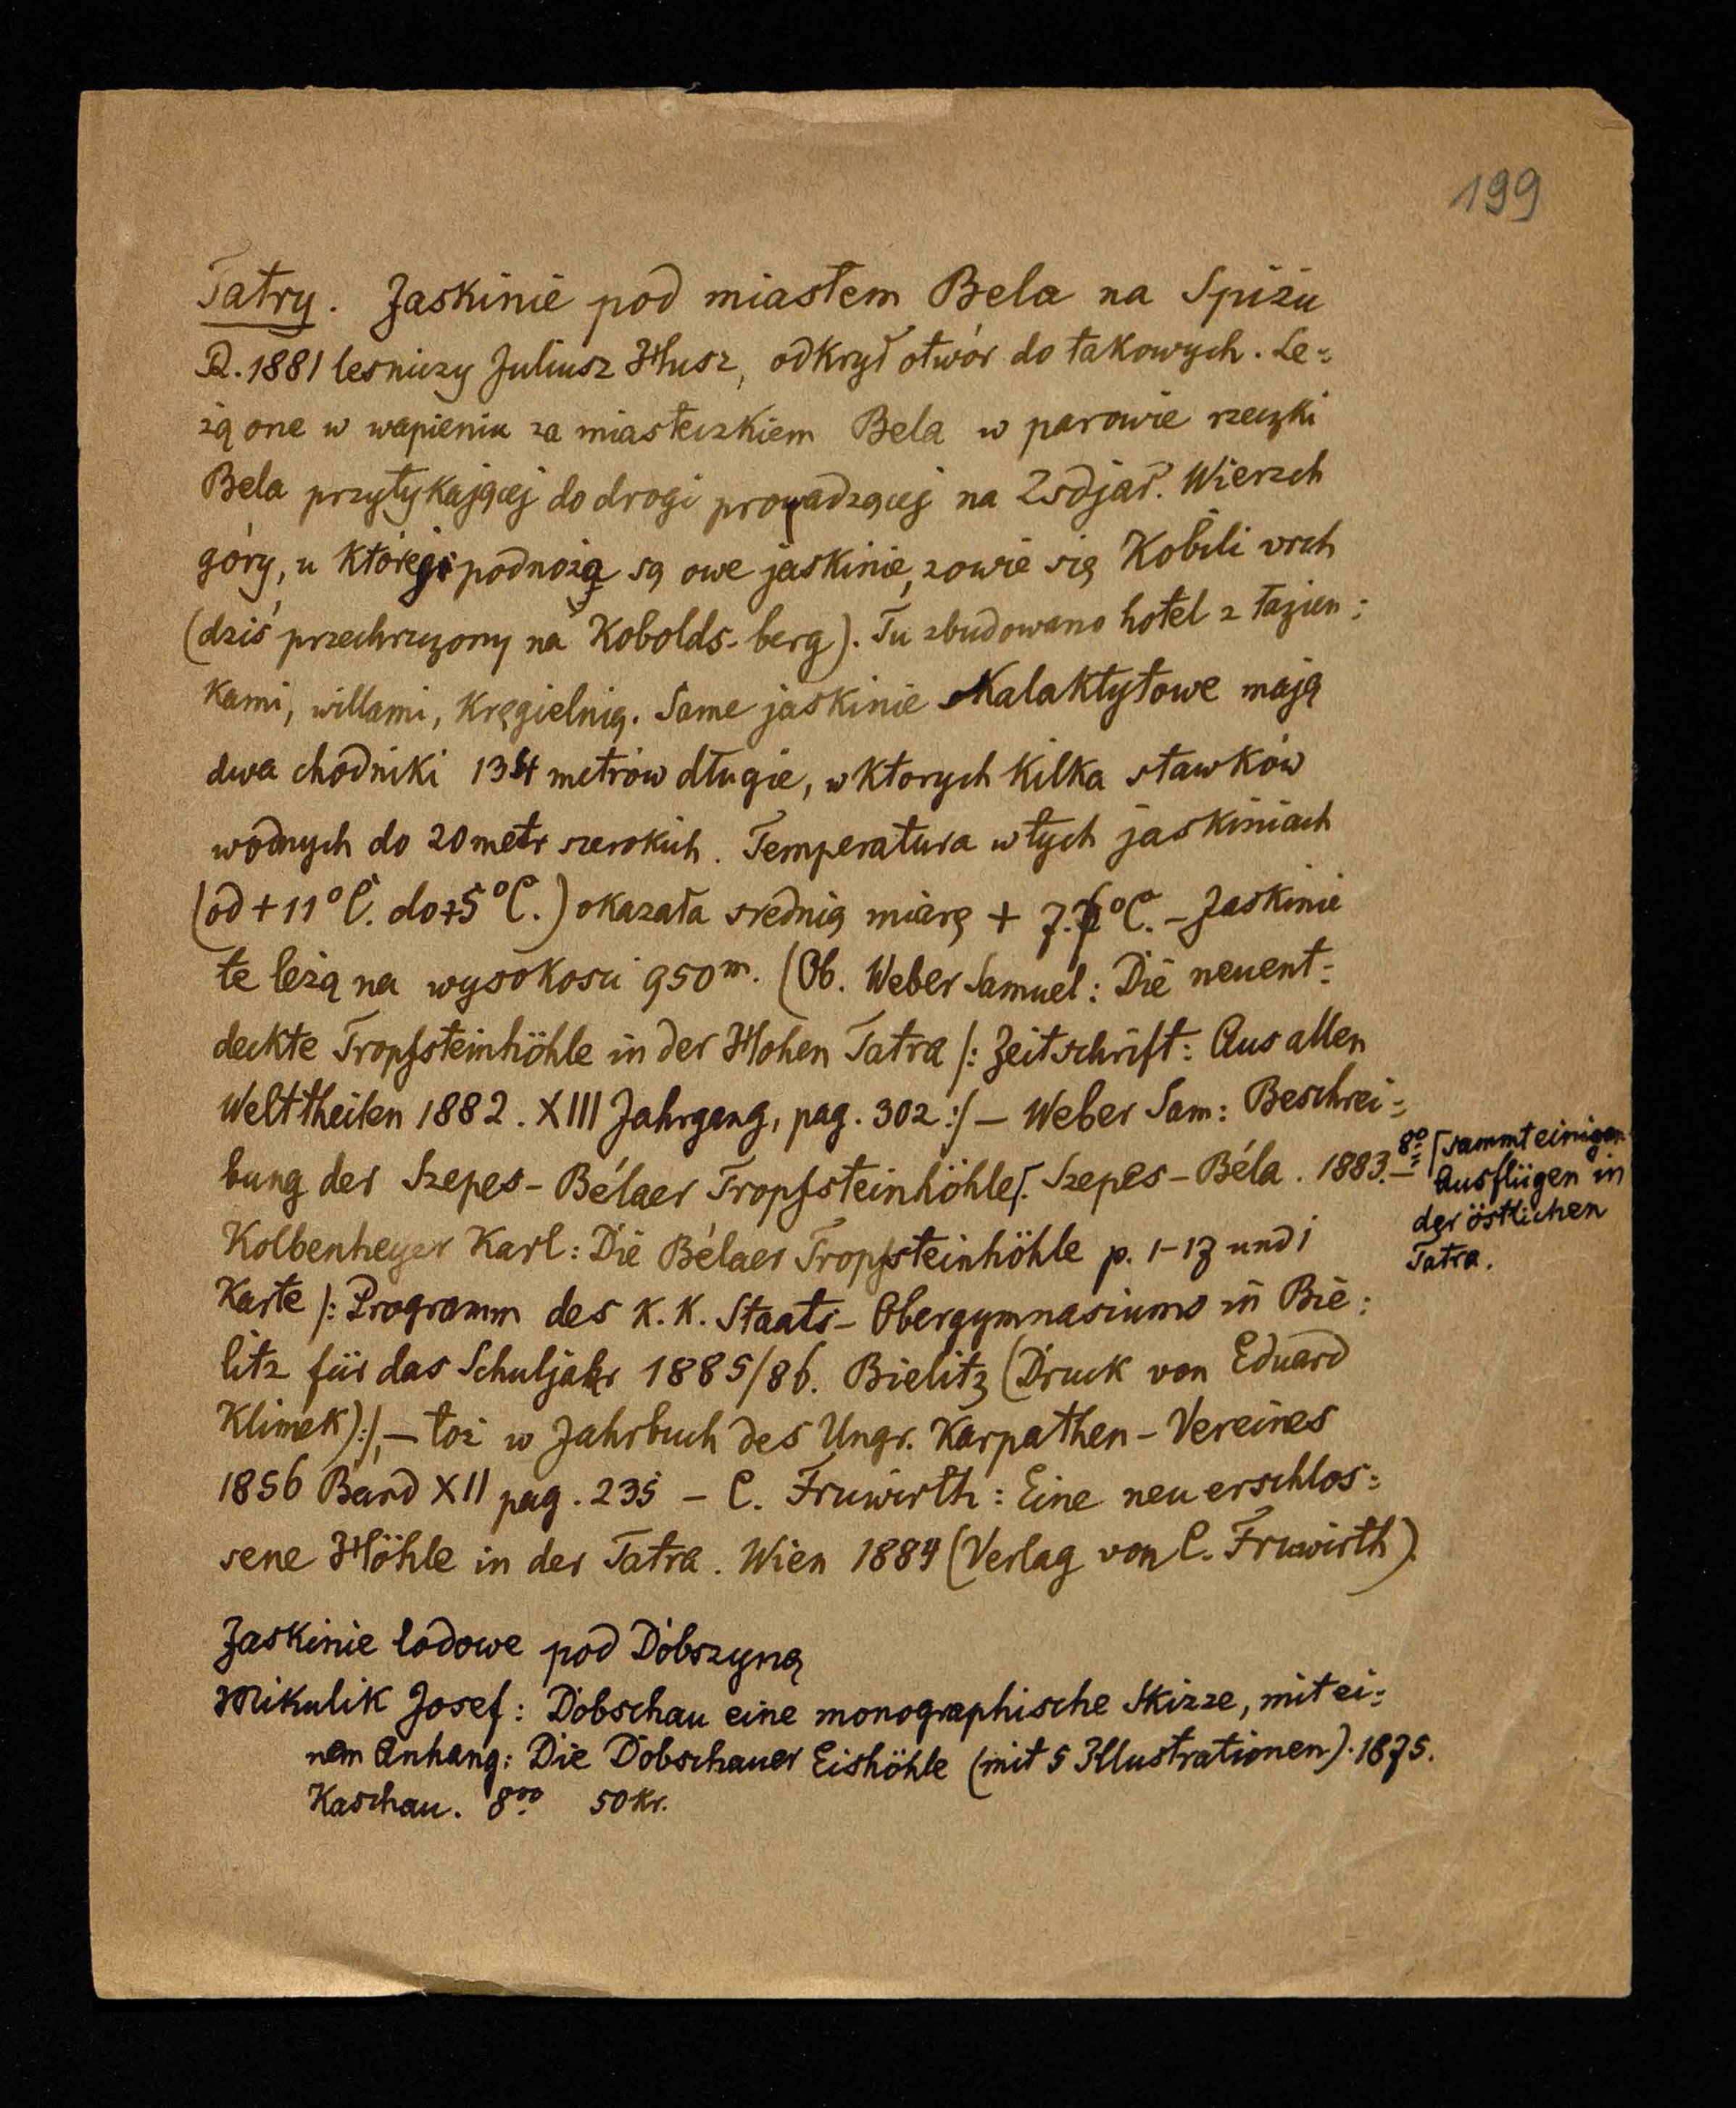 199
Tatry. Jaskinie pod miastem Bela na Spiżu
R. 1881 lesniczy Juliusz Husz, odkrył otwór do takowych. Le=
żą one w wapieniu za miasteczkiem Bela w parowie rzeczki
Bela przytykającej do drogi prowadzącej na Zsdjar. Wierzch
góry, u której podnoża są owe jaskinie, zowie się Kobili vrch
(dziś przechrzczony na Kobolds-berg). Tu zbudowano hotel z łazien=
kami, willami, kręgielnią. Same jaskinie stalaktytowe mają
dwa chodniki 134 metrów długie, w ktorych kilka stawków
wodnych do 20 metr szerokich. Temperatura w tych jaskiniach
(od +11°C. do +5°C.) okazała srednią miarę + 7.7°C. – Jaskinie
te leżą na wysokosci 950m. (Ob. Weber Samuel: Die neuent=
deckte Tropfsteinhöhle in der Hohen Tatra /: Zeitschrift: Aus allen
Welttheilen 1882. XIII Jahrgang, pag. 302 :/ – Weber Sam: Beschrei=
bung der Szepes-Bélaer Tropfsteinhöhle/. Szepes-Béla. 1883. 8° –
/sammt einigen
Ausflügen in
der östlichen
Tatra.
Kolbenheyer Karl: Die Bélaer Tropfsteinhöhle p. 1-17 und 1
Karte /: Programm des K. K. Staats-Obergymnasiums in Bie=
litz für das Schuljahr 1885/86. Bielitz (Druck von Eduard
Klimek) :/, – toż w Jahrbuch des Ungr. Karpathen-Vereines
1856 Band XII pag. 235 – C. Fruwirth: Eine neu erschlos=
sene Höhle in der Tatra. Wien 1884 (Verlag von C. Fruwirth).
Jaskinie lodowe pod Dobszyną
Mikulik Josef: Dobschau eine monographische Skizze, mit ei=
nem Anhang: Die Dobschauer Eishöhle (mit 5 Illustrationen). 1875.
Kaschau. 8vo 50 kr.